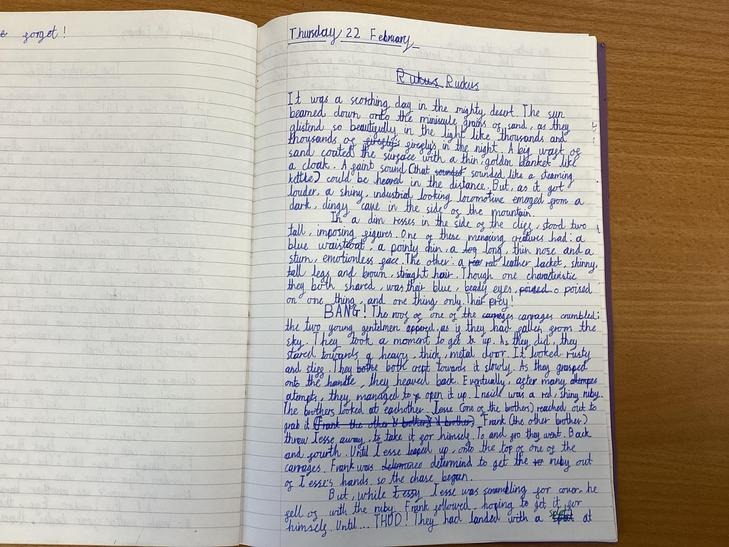 forget!
Thursday 22 February
Rukus Ruckus
It was a scorching day in the mighty desert. The sun
beamed down onto the miniscule grains of sand, as they
glistend so beautifully in the light like thousands and
thousands of fireflys in the night. A big wave of
sand coated the surface with a thin, golden blanket like
a cloak. A faint sound (that sounded sounded like a steaming
kettle) could be heared in the distance. But, as it got
louder, a shiny, industrial looking locomotive emerged from a
dark, dingy cave in the side of the mountain.
In a dim resses in the side of the cliff, stood two
tall, imposing figures. One of these menacing creatures had: a
blue waistcoat, a pointy chin, a long, thin nose and a
sturn, emotionless face. The other: a red leather jacket, skinny,
tall legs and brown, straight hair. Though one characteristic
they both shared, was their blue, beady eyes, poised
on one thing, and one thing only. Their prey!
BANG! The roof of one of the carrages crumbled:
the two young gentelmen, as if they had fallen from the
sky. They took a moment to get up. As they did, they
stared towards a heavy, thick, metal door. It looked rusty
and stiff. They both crept towards it slowly. As they grasped
onto the handle, they heaved back. Eventually, after many
atempts, they managed to open it up. Inside was a red, shiny ruby.
The brothers looked at eachother. Jesse (one of the brothers) reached out to
grab it (Frank the other brother) Frank (the other brother)
threw Jesse away, to take it for himself. To and fro they went. Back
and fourth. Until Jesse leaped up, onto the top of one of the
carrages. Frank was determind to get the ruby out
of Jesse's hands, so the chase began.
But, while Jesse was scrambling for cover, he
fell of with the ruby. Frank followed, hoping to get it for
himself. Until... THUD! They had landed with a splat at